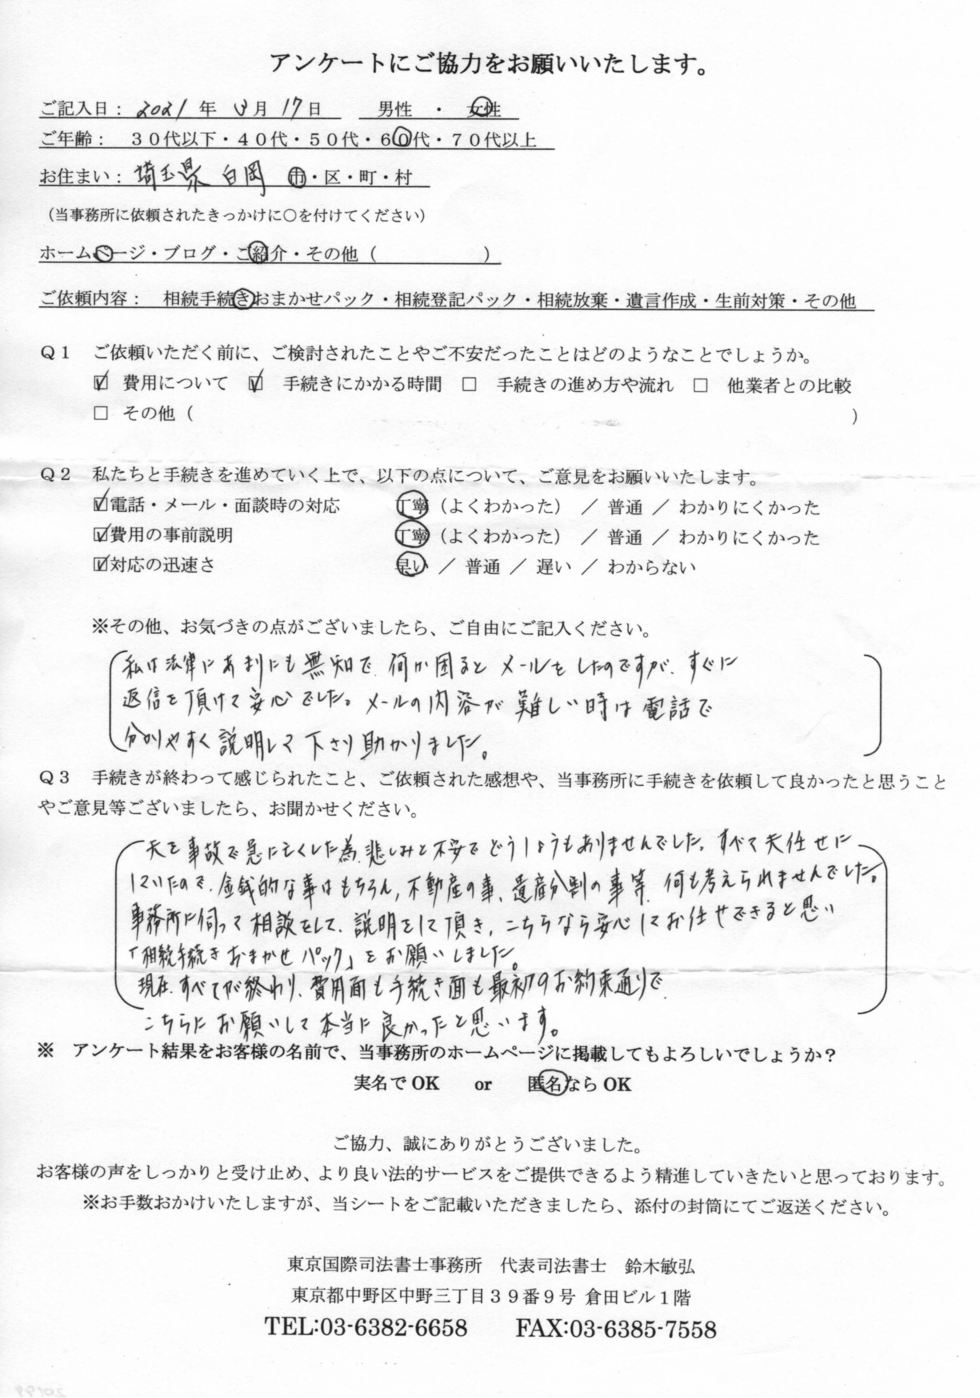 アンケートにご協力をお願いいたします。
ご記入日： 2021 年 3 月 17 日　男性 ・ 女性
ご年齢：　３０代以下・４０代・５０代・６０代・７０代以上
お住まい： 埼玉県 白岡 市・区・町・村
（当事務所に依頼されたきっかけに○を付けてください）
ホームページ・ブログ・ご紹介・その他（　　　　　　）
ご依頼内容：　相続手続きおまかせパック・相続登記パック・相続放棄・遺言作成・生前対策・その他
Ｑ１　ご依頼いただく前に、ご検討されたことやご不安だったことはどのようなことでしょうか。
☑ 費用について　☑ 手続きにかかる時間　□ 手続きの進め方や流れ　□ 他業者との比較
□ その他（　　　　　　　　　　）
Ｑ２　私たちと手続きを進めていく上で、以下の点について、ご意見をお願いいたします。
☑電話・メール・面談時の対応　丁寧（よくわかった） ／ 普通 ／ わかりにくかった
☑費用の事前説明　丁寧（よくわかった） ／ 普通 ／ わかりにくかった
☑対応の迅速さ　早い ／ 普通 ／ 遅い ／ わからない
※その他、お気づきの点がございましたら、ご自由にご記入ください。
私は法律にあまりにも無知で、何か困るとメールをしたのですが、すぐに
返信を頂けて安心でした。メールの内容が難しい時は電話で
分かりやすく説明して下さり助かりました。
Ｑ３　手続きが終わって感じられたこと、ご依頼された感想や、当事務所に手続きを依頼して良かったと思うこと
やご意見等ございましたら、お聞かせください。
夫を事故で急に亡くした為、悲しみと不安でどうしようもありませんでした。すべて夫任せに
していたので、金銭的な事はもちろん、不動産の事、遺産分割の事等、何も考えられませんでした。
事務所に伺って相談をして、説明をして頂き、こちらなら安心してお任せできると思い
「相続手続きおまかせパック」をお願いしました。
現在、すべてが終わり、費用面も手続き面も最初のお約束通りで
こちらにお願いして本当に良かったと思います。
※　アンケート結果をお客様の名前で、当事務所のホームページに掲載してもよろしいでしょうか？
実名で OK　　or　　匿名なら OK
ご協力、誠にありがとうございました。
お客様の声をしっかりと受け止め、より良い法的サービスをご提供できるよう精進していきたいと思っております。
※お手数おかけいたしますが、当シートをご記載いただきましたら、添付の封筒にてご返送ください。
東京国際司法書士事務所　代表司法書士　鈴木敏弘
東京都中野区中野三丁目３９番９号 倉田ビル１階
TEL:03-6382-6658　　FAX:03-6385-7558